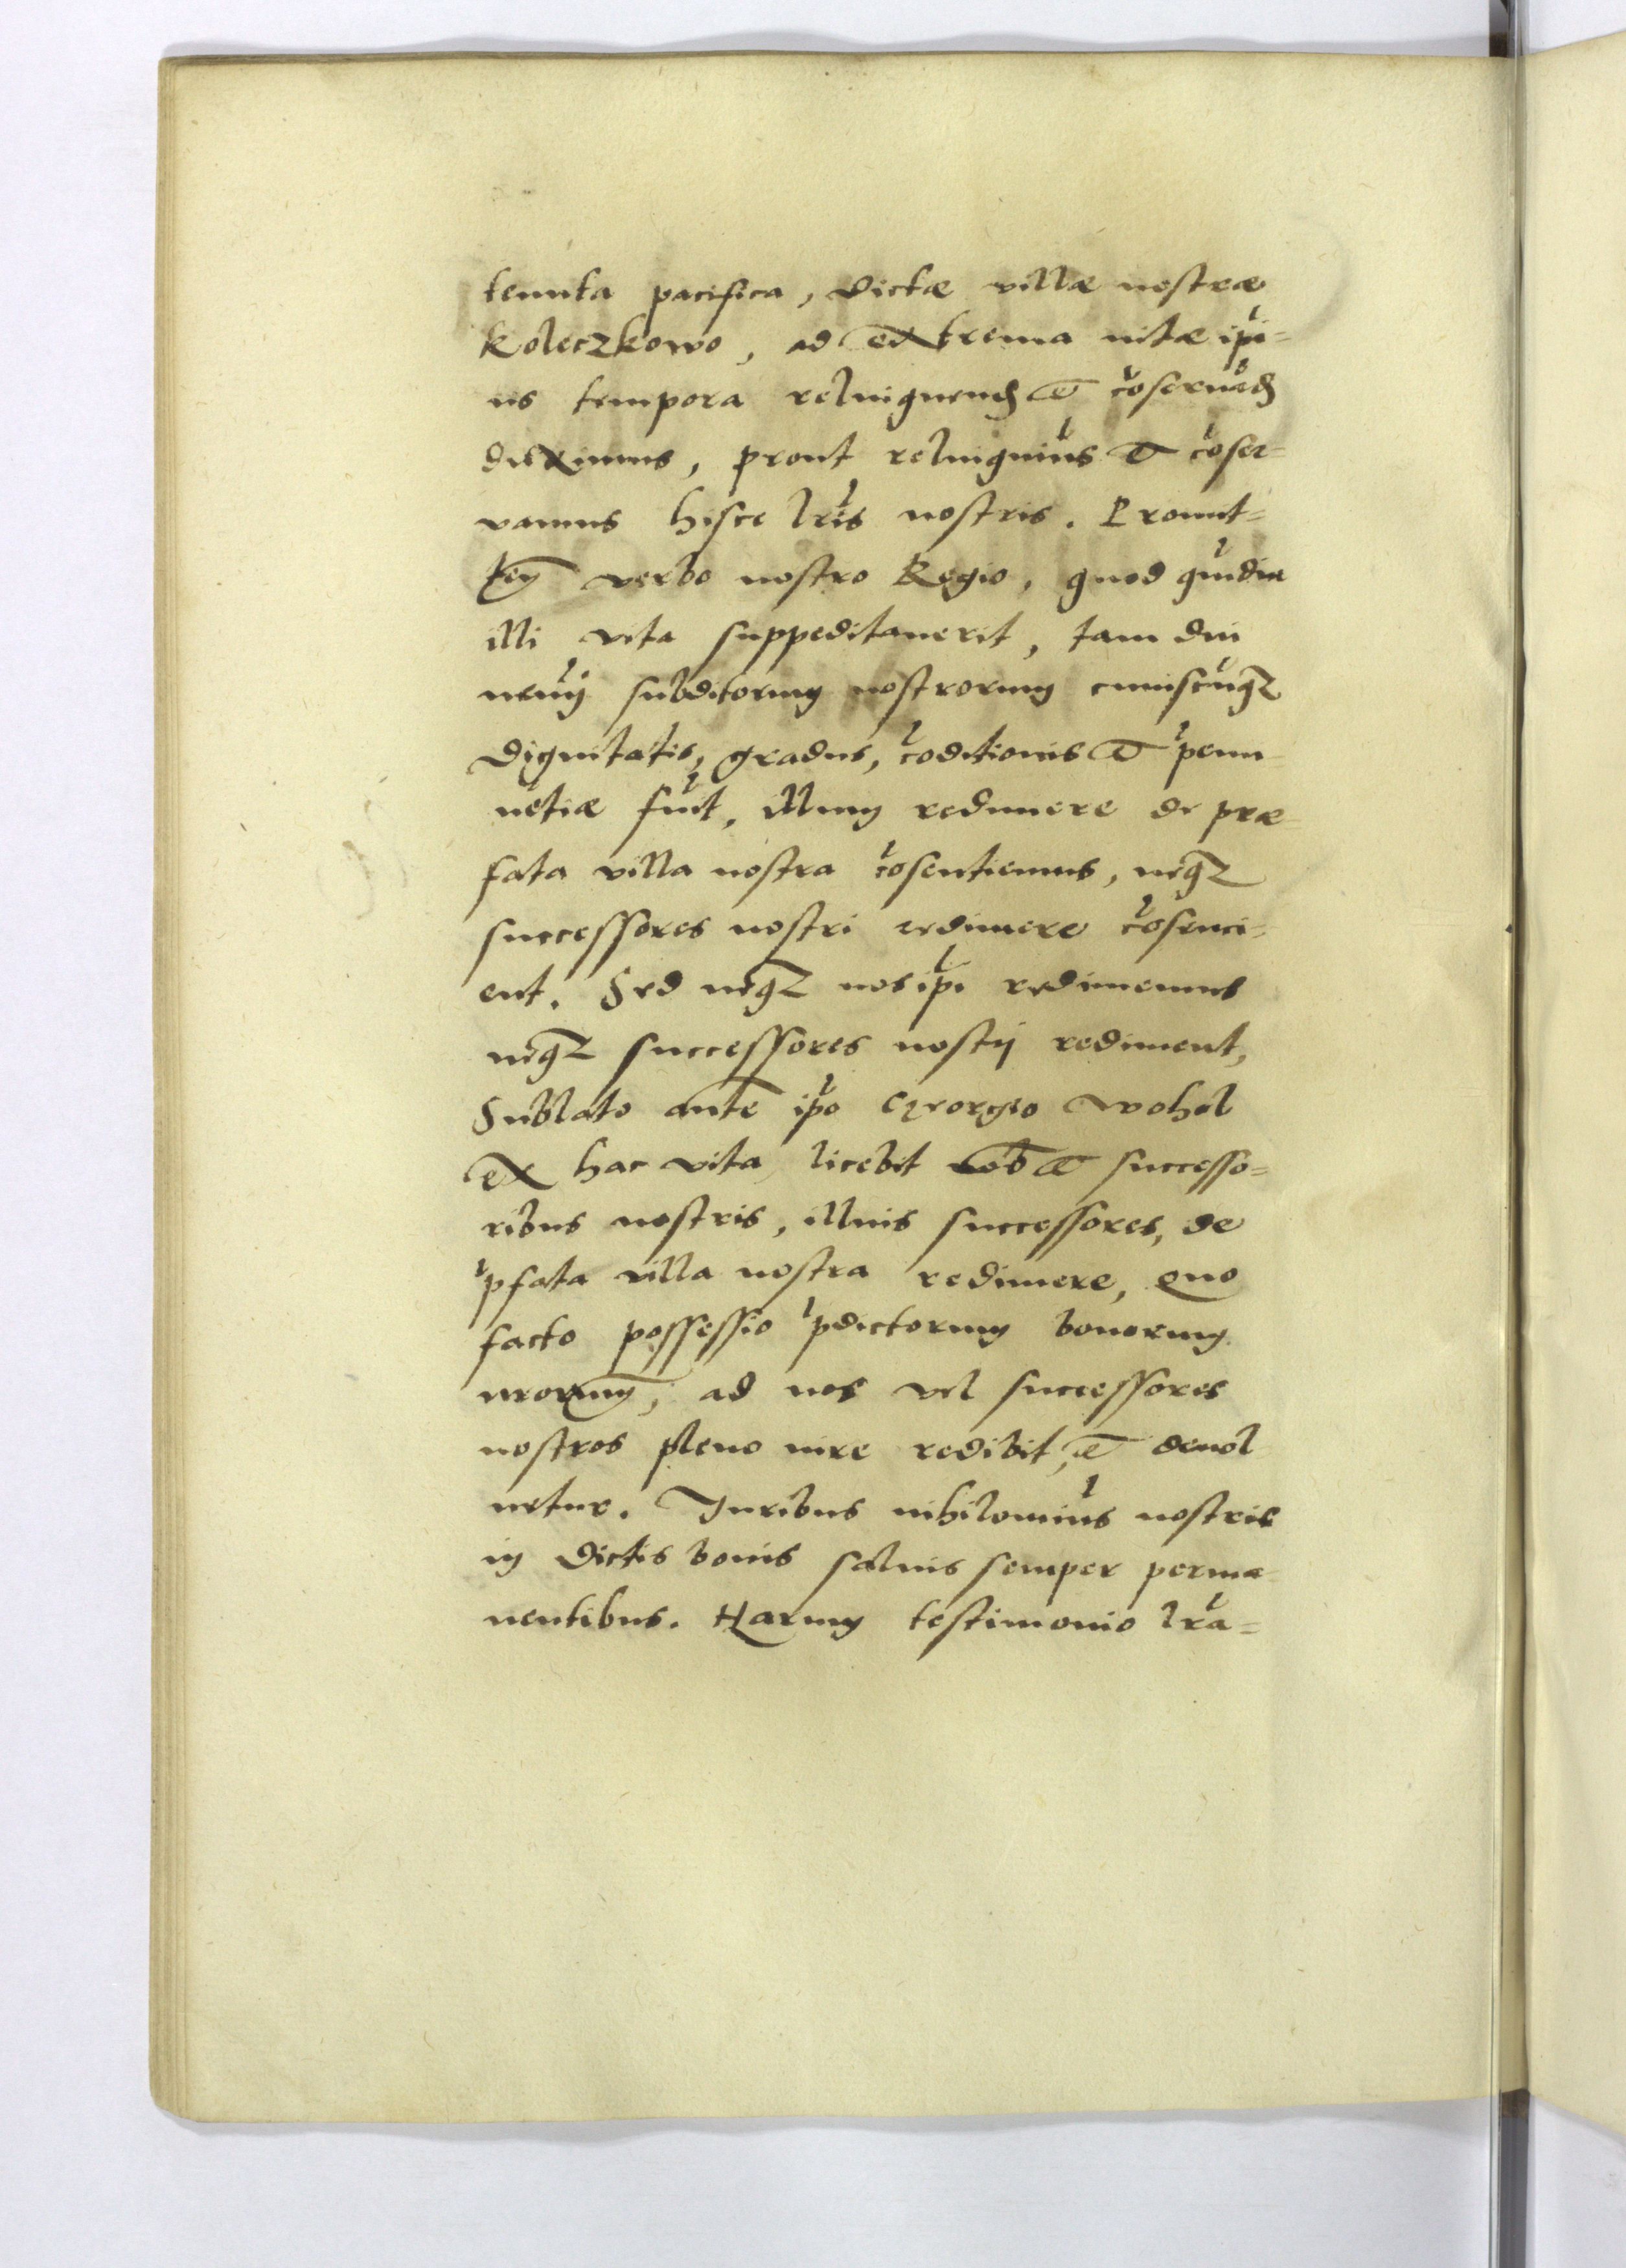 tenuta pacifica, dictæ villæ nostræ
Koleczkowo, ad extrema uitæ ipi-
us tempora relinquend et cõseruãd
duximus, prout relinquim̃us et cõser-
vamus hisce lr̃is nostris. Promit-
tẽ verbo nostro Regio, quod qũdiu
illi vita suppeditauerit, tam diu
nem̃ subditorum nostrorum cuiuscũq
dignitatis, gradus, cõditionis et p̃emi-
nẽtiæ fũit, illum redimere de præ-
fata villa nostra cõsentiemus, neq
successores nostri redimere cõsenci-
ent. Sed neq nos ip̃i redimemus
neq successores nostri rediment,
Sublato autẽ ip̃o Georgio Wohol
ex hac vita, licebit nob et successo-
ribus nostris, illius successores, de
p̃fata villa nostra redimere, quo
facto possessio p̃dictorum bonorum
nrorum̃, ad nos vel successores
nostros pleno iure redibit, et deuol
uetur. Juribus nihilomĩus nostris
in dictis bonis saluis semper perma-
nentibus. Harum testimonio lr̃a-